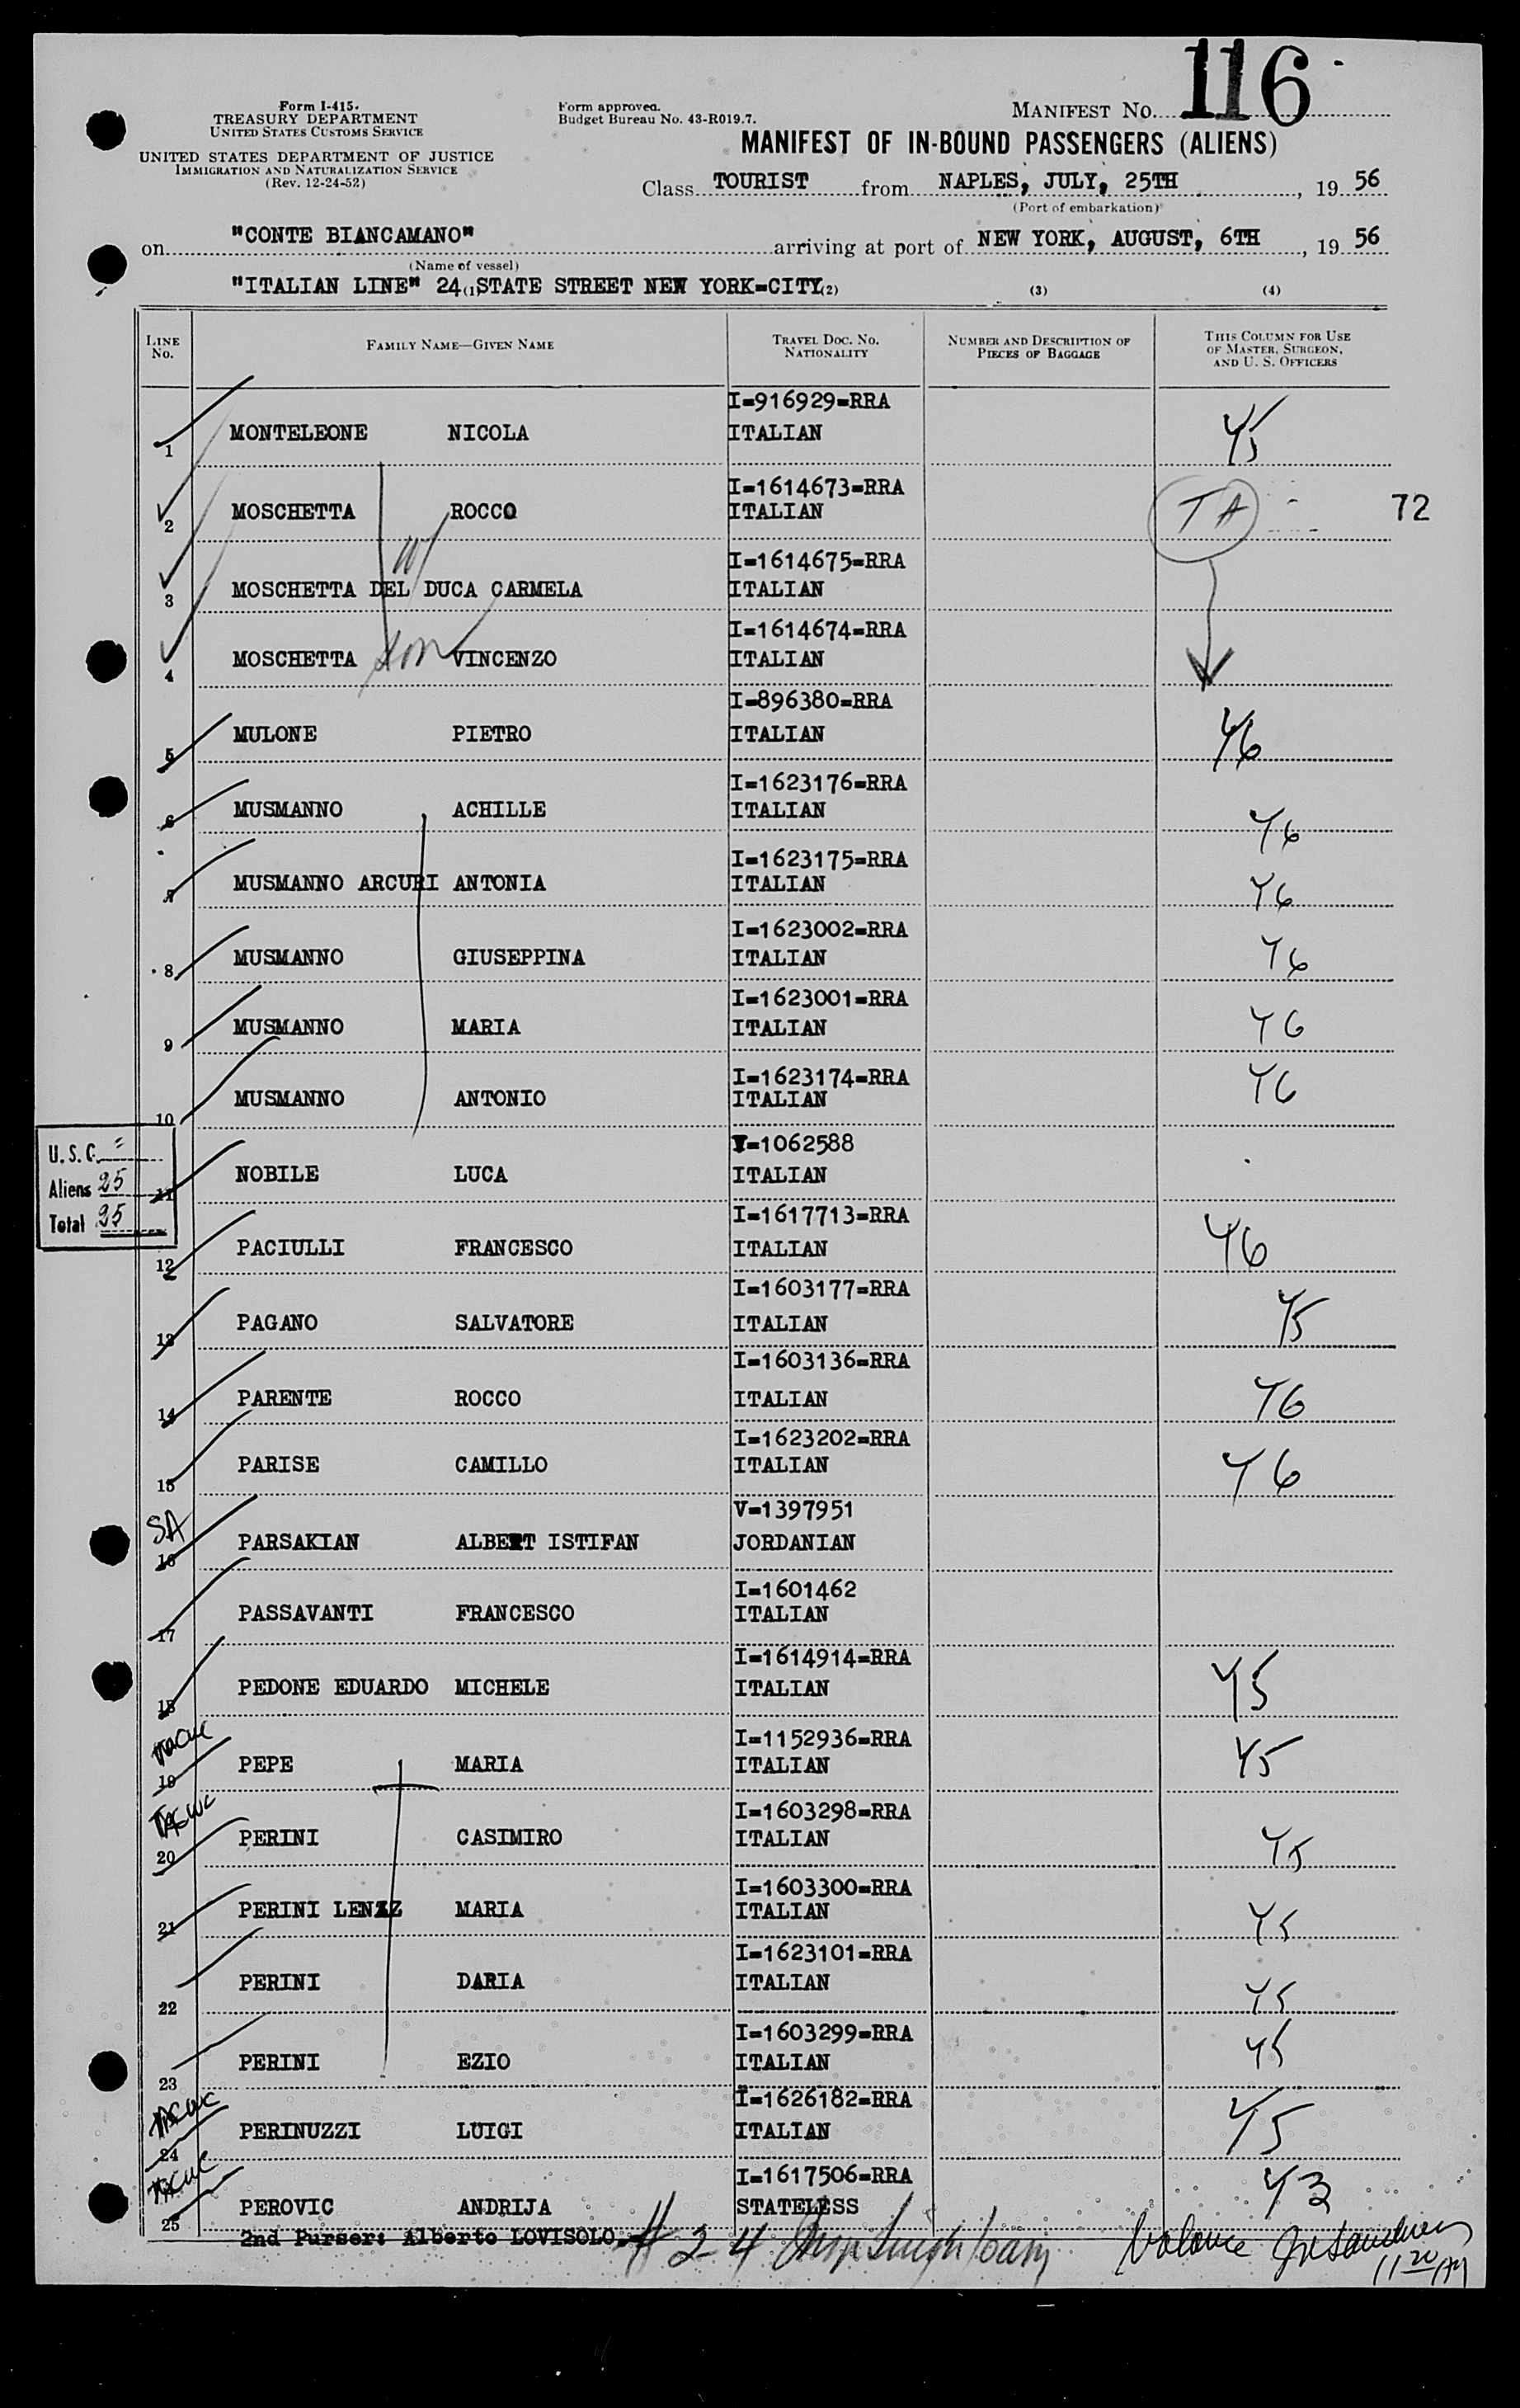 116
Form I-415.
TREASURY DEPARTMENT
UNITED STATES CUSTOMS SERVICE
UNITED STATES DEPARTMENT OF JUSTICE
IMMIGRATION AND NATURALIZATION SERVICE
(Rev. 12-24-52)
Form approved.
Budget Bureau No. 43-R019.7.
MANIFEST No.
MANIFEST OF IN-BOUND PASSENGERS (ALIENS)
Class TOURIST from NAPLES, JULY, 25TH, 19 56
(Port of embarkation)
on "CONTE BIANCAMANO" arriving at port of NEW YORK, AUGUST, 6TH, 19 56
(Name of vessel)
"ITALIAN LINE" 24 (1) STATE STREET NEW YORK=CITY (2) (3) (4)
LINE No. FAMILY NAME—GIVEN NAME TRAVEL DOC. NO. NATIONALITY NUMBER AND DESCRIPTION OF PIECES OF BAGGAGE THIS COLUMN FOR USE OF MASTER, SURGEON, AND U. S. OFFICERS
I=916929=RRA
1 MONTELEONE NICOLA ITALIAN 45
I=1614673=RRA
2 MOSCHETTA ROCCO ITALIAN TA 72
W
I=1614675=RRA
3 MOSCHETTA DEL DUCA CARMELA ITALIAN
I=1614674=RRA
4 MOSCHETTA son VINCENZO ITALIAN
I=896380=RRA
5 MULONE PIETRO ITALIAN 46
I=1623176=RRA
6 MUSMANNO ACHILLE ITALIAN 46
I=1623175=RRA
7 MUSMANNO ARCURI ANTONIA ITALIAN 46
I=1623002=RRA
8 MUSMANNO GIUSEPPINA ITALIAN 46
I=1623001=RRA
9 MUSMANNO MARIA ITALIAN 46
I=1623174=RRA
10 MUSMANNO ANTONIO ITALIAN 46
U.S.C. =
Aliens 25
Total 25
V=1062588
11 NOBILE LUCA ITALIAN
I=1617713=RRA
12 PACIULLI FRANCESCO ITALIAN 46
I=1603177=RRA
13 PAGANO SALVATORE ITALIAN 45
I=1603136=RRA
14 PARENTE ROCCO ITALIAN 46
I=1623202=RRA
15 PARISE CAMILLO ITALIAN 46
V=1397951
SA
16 PARSAKIAN ALBERT ISTIFAN JORDANIAN
I=1601462
17 PASSAVANTI FRANCESCO ITALIAN
I=1614914=RRA
18 PEDONE EDUARDO MICHELE ITALIAN 45
I=1152936=RRA
19 PEPE MARIA ITALIAN 45
I=1603298=RRA
20 PERINI CASIMIRO ITALIAN 45
I=1603300=RRA
21 PERINI LENZZ MARIA ITALIAN 45
I=1623101=RRA
22 PERINI DARIA ITALIAN 45
I=1603299=RRA
23 PERINI EZIO ITALIAN 45
I=1626182=RRA
24 PERINUZZI LUIGI ITALIAN 45
I=1617506=RRA
25 PEROVIC ANDRIJA STATELESS 43
2nd Purser: Alberto LOVISOLO. # 2-4